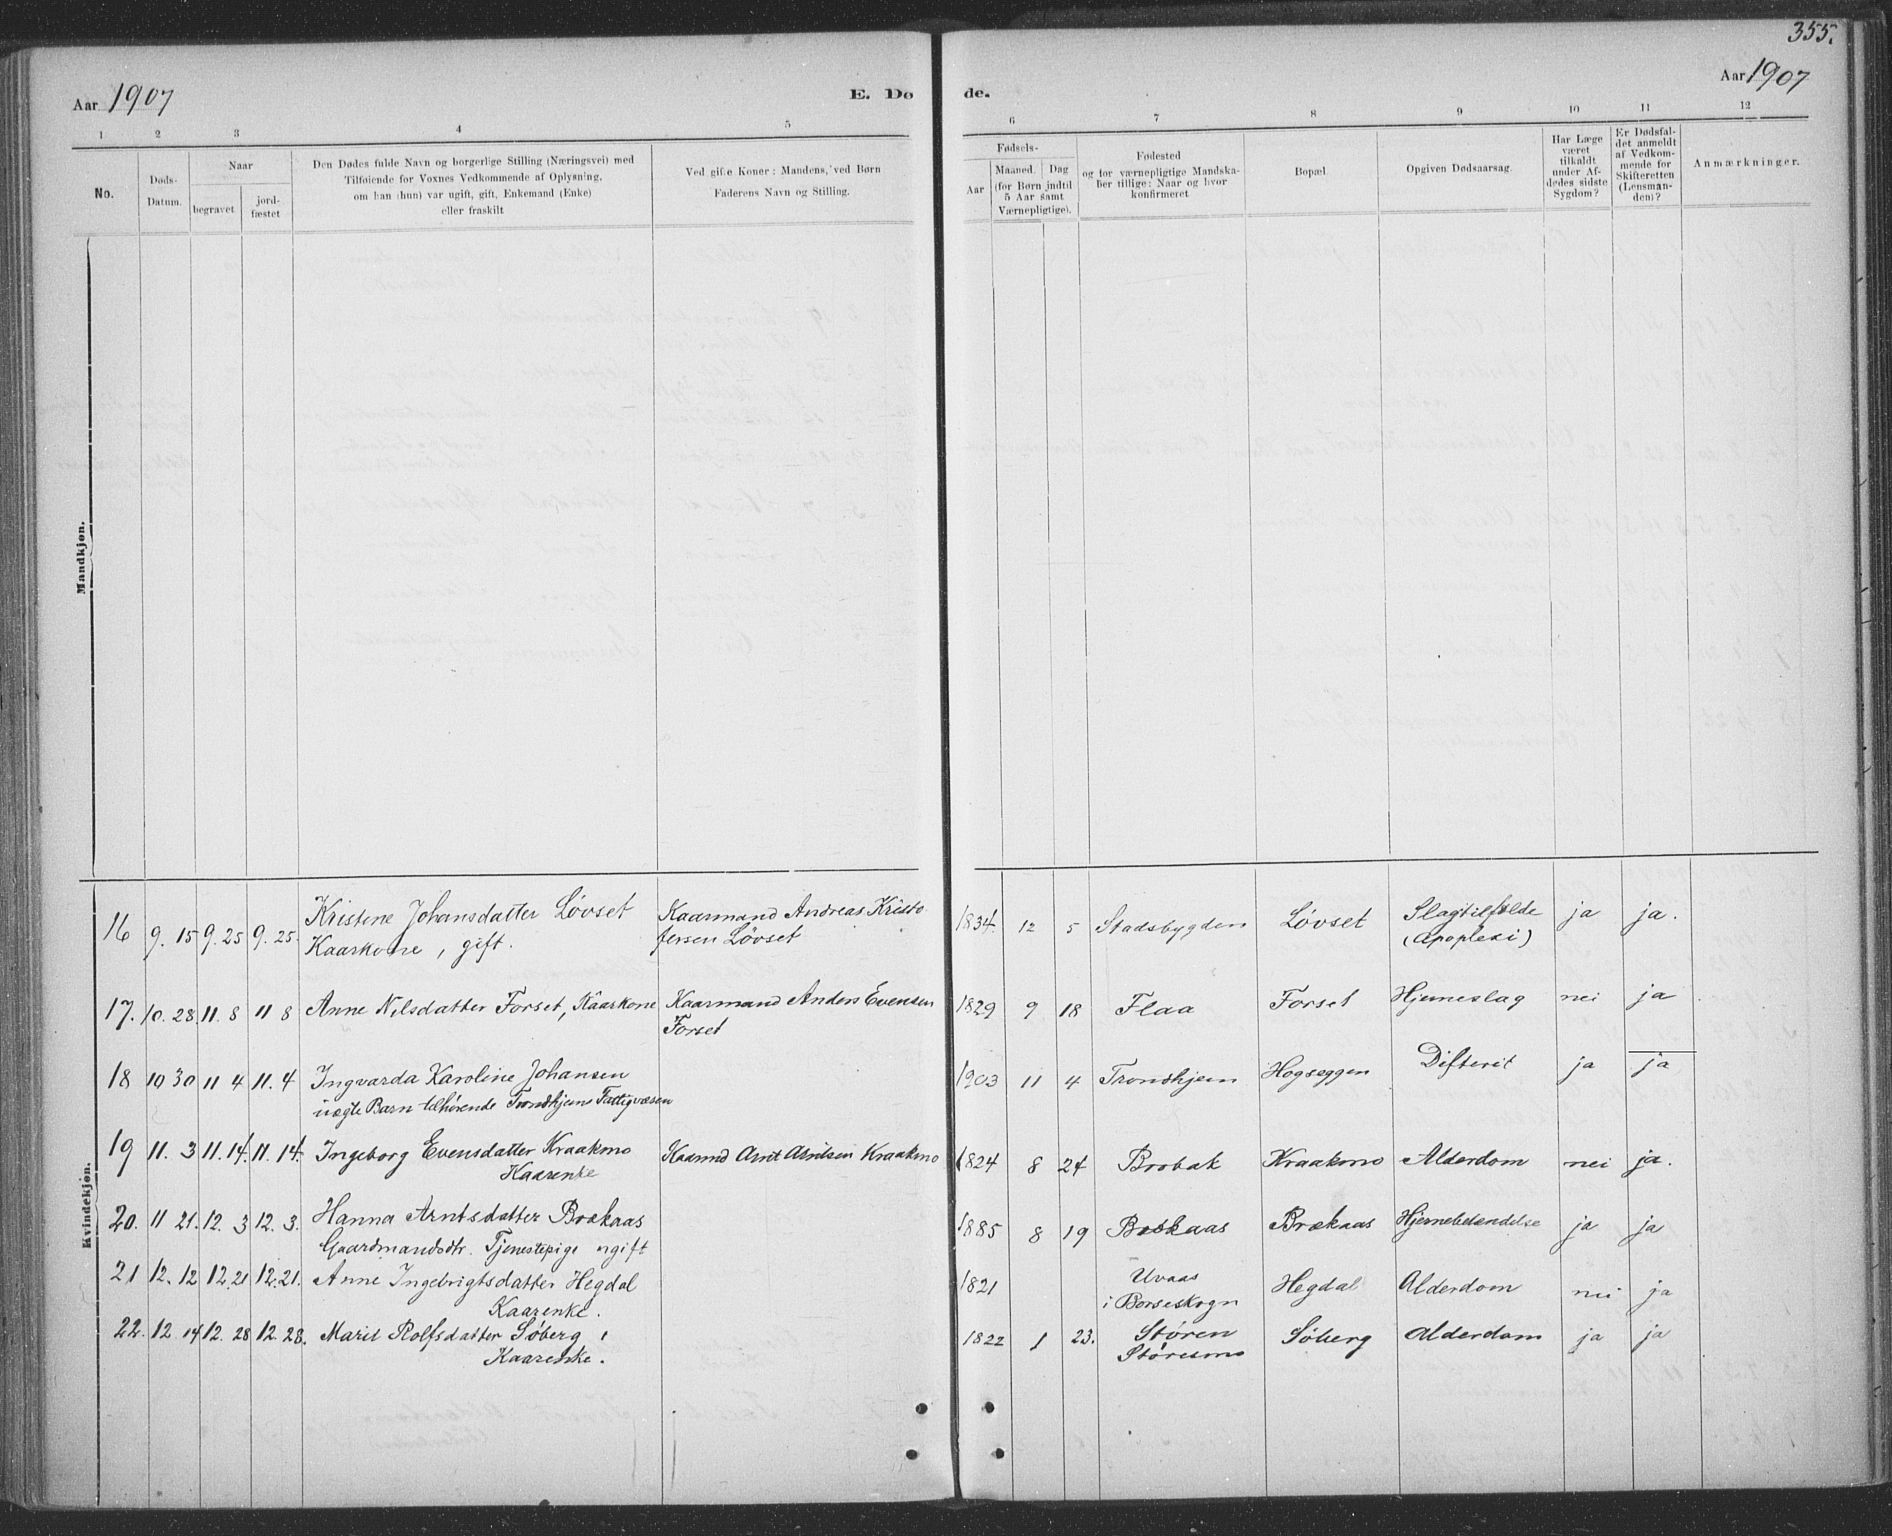 355.
Aar 1907
E. Dø de.
Aar 1907
1 2 3 4 5 6 7 8 9 10 11 12
No.
Døds-
Datum.
Naar
begravet
jord-
fæstet
Den Dødes fulde Navn og borgerlige Stilling (Næringsvei) med
Tilføiende for Voxnes Vedkommende af Oplysning,
om han (hun) var ugift, gift, Enkemand (Enke)
eller fraskilt
Ved gifte Koner: Mandens, ved Børn
Faderens Navn og Stilling.
Fødsels-
Aar
Maaned. Dag
(for Børn indtil
5 Aar samt
Værnepligtige).
Fødested
og for værnepligtige Mandska-
ber tillige: Naar og hvor
konfirmeret
Bopæl
Opgiven Dødsaarsag.
Har Læge
været
tilkaldt
under Af-
dødes sidste
Sygdom?
Er Dødsfal-
det anmeldt
af Vedkom-
mende for
Skifteretten
(Lensman-
den)?
Anmærkninger.
Mandkjøn.
Kvindekjøn.
16 9. 15 9. 25 9. 25. Kristine Johansdatter Løvset Kaarmand Andreas Kristo 1834. 12 5 Stadsbygden Løvset Slagtilfælde ja ja.
Kaarkone, gift. fersen Løvset (Apoplexi)
17. 10. 28. 11. 8 11 8 Anne Nilsdatter Forset, Kaarkone Kaarmand Anders Evensen 1829 9 18 Flaa Forset Hjerneslag nei ja
Forset
18 10 30 11 4 11. 4 Ingvarda Karoline Johansen 1903 11 4 Trondhjem Hogseggen Difterit ja ja
uægte Barn tilhørende Trondhjems Fattigvæsen
19 11. 3 11. 14. 11. 14. Ingeborg Evensdatter Kraakmo Kaarmd Arnt Arntsen Kraakmo 1824 8 24 Brobak Kraakmo Alderdom nei ja.
Kaarenke
20. 11 21. 12. 3 12. 3. Hanna Arntsdatter Brækaas 1885 8 19 Brækaas Brækaas Hjernebetændelse ja ja
Gaardmandsdtr. Tjenestepige ugift
21 12. 12 12. 21 12. 21. Anne Ingebrigtsdatter Hegdal 1821 Uvaas Hegdal Alderdom nei ja
Kaarenke. i Børseskogn
22. 12 14 12. 28 12. 28. Marit Rolfsdatter Søberg, 1822 1 23. Støren Søberg Alderdom ja ja
Kaarenke. Størensmo